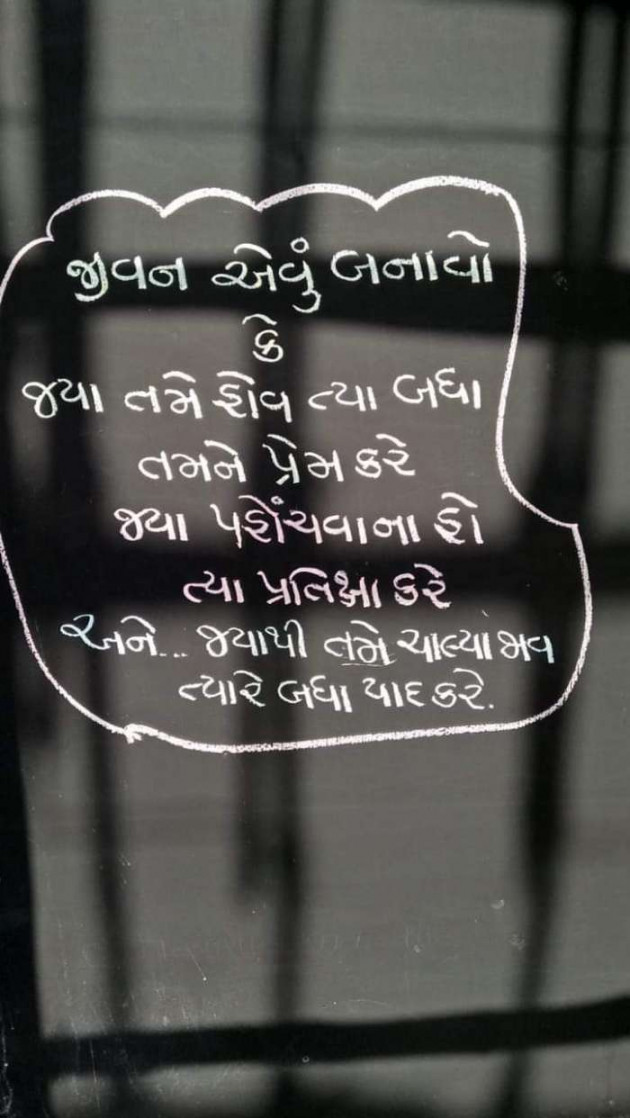 જીવન એવું બનાવો
કે
જયા તમે હોવ ત્યા બધા
તમને પ્રેમ કરે
જયા પહોંચવાના હો
ત્યા પ્રતિક્ષા કરે
અને... જયાથી તમે ચાલ્યા જાવ
ત્યારે બધા યાદ કરે.